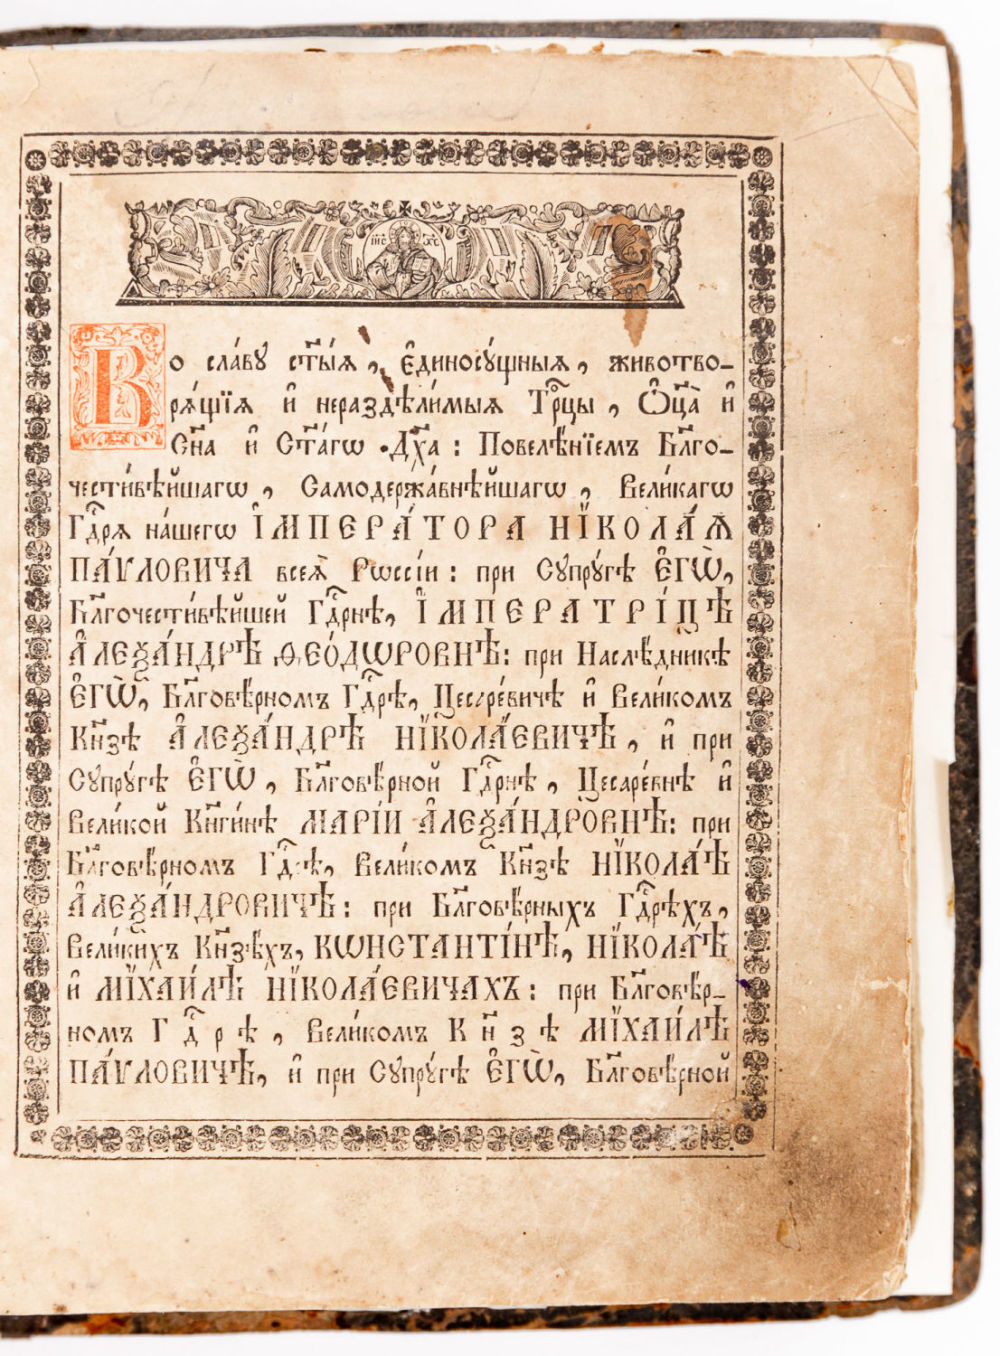 І҃ИС Х҃С
Во сла́вꙋ ст҃ы́ѧ, є҆диносꙋ́щныѧ, животво-
рѧ́щїѧ и҆ нераздѣли́мыѧ Трⷪ҇цы, Ѻ҆ц҃а̀ и҆
Сн҃а и҆ Ст҃а́гѡ Дх҃а : Повелѣ́нїемъ Бл҃го-
чести́вѣйшагѡ , Самодержа́внѣйшагѡ , Вели́кагѡ
Гдⷭ҇рѧ на́шегѡ І҆МПЕРА́ТОРА НЇКОЛА́Ѧ
ПА́ѴЛОВИЧА всеѧ̀ Рѡссі́и : при Сꙋпрꙋ́гѣ Є҆ГѠ̀,
Бл҃гочести́вѣйшей Гдⷭ҇рнѣ, І҆МПЕРАТРІ́ЦѢ
А҆ЛЕѮА́НДРѢ Ѳ҆ЕО́ДѠРОВНѢ: при Наслѣ́дникѣ
Є҆ГѠ̀, Бл҃говѣ́рномъ Гдⷭ҇рѣ, Цесаре́вичѣ и҆ Вели́комъ
Кн҃зѣ А҆ЛЕѮА́НДРѢ НЇКОЛА́ЕВИЧѢ , и҆ при
Сꙋпрꙋ́гѣ Є҆ГѠ̀ , Бл҃говѣ́рной Гдⷭ҇рнѣ , Цесаре́внѣ и҆
Вели́кой Кн҃ги́нѣ МАРІ́И А҆ЛЕѮА́НДРОВНѢ: при
Бл҃говѣ́рномъ Гдⷭ҇рѣ, Вели́комъ Кн҃зѣ НЇКОЛА́Ѣ
А҆ЛЕѮА́НДРОВИЧѢ : при Бл҃говѣ́рныхъ Гдⷭ҇рѣхъ,
Вели́кихъ Кн҃зѣхъ, КѠНСТАНТІ́НѢ, НЇКОЛА́Ѣ
и҆ МЇХАИ́ЛѢ НЇКОЛА́ЕВИЧАХЪ : при Бл҃говѣ́р-
номъ Гдⷭ҇рѣ , Вели́комъ Кн҃зѣ МЇХАИ́ЛѢ
ПА́ѴЛОВИЧѢ, и҆ при Сꙋпрꙋ́гѣ Є҆ГѠ̀, Бл҃говѣ́рной